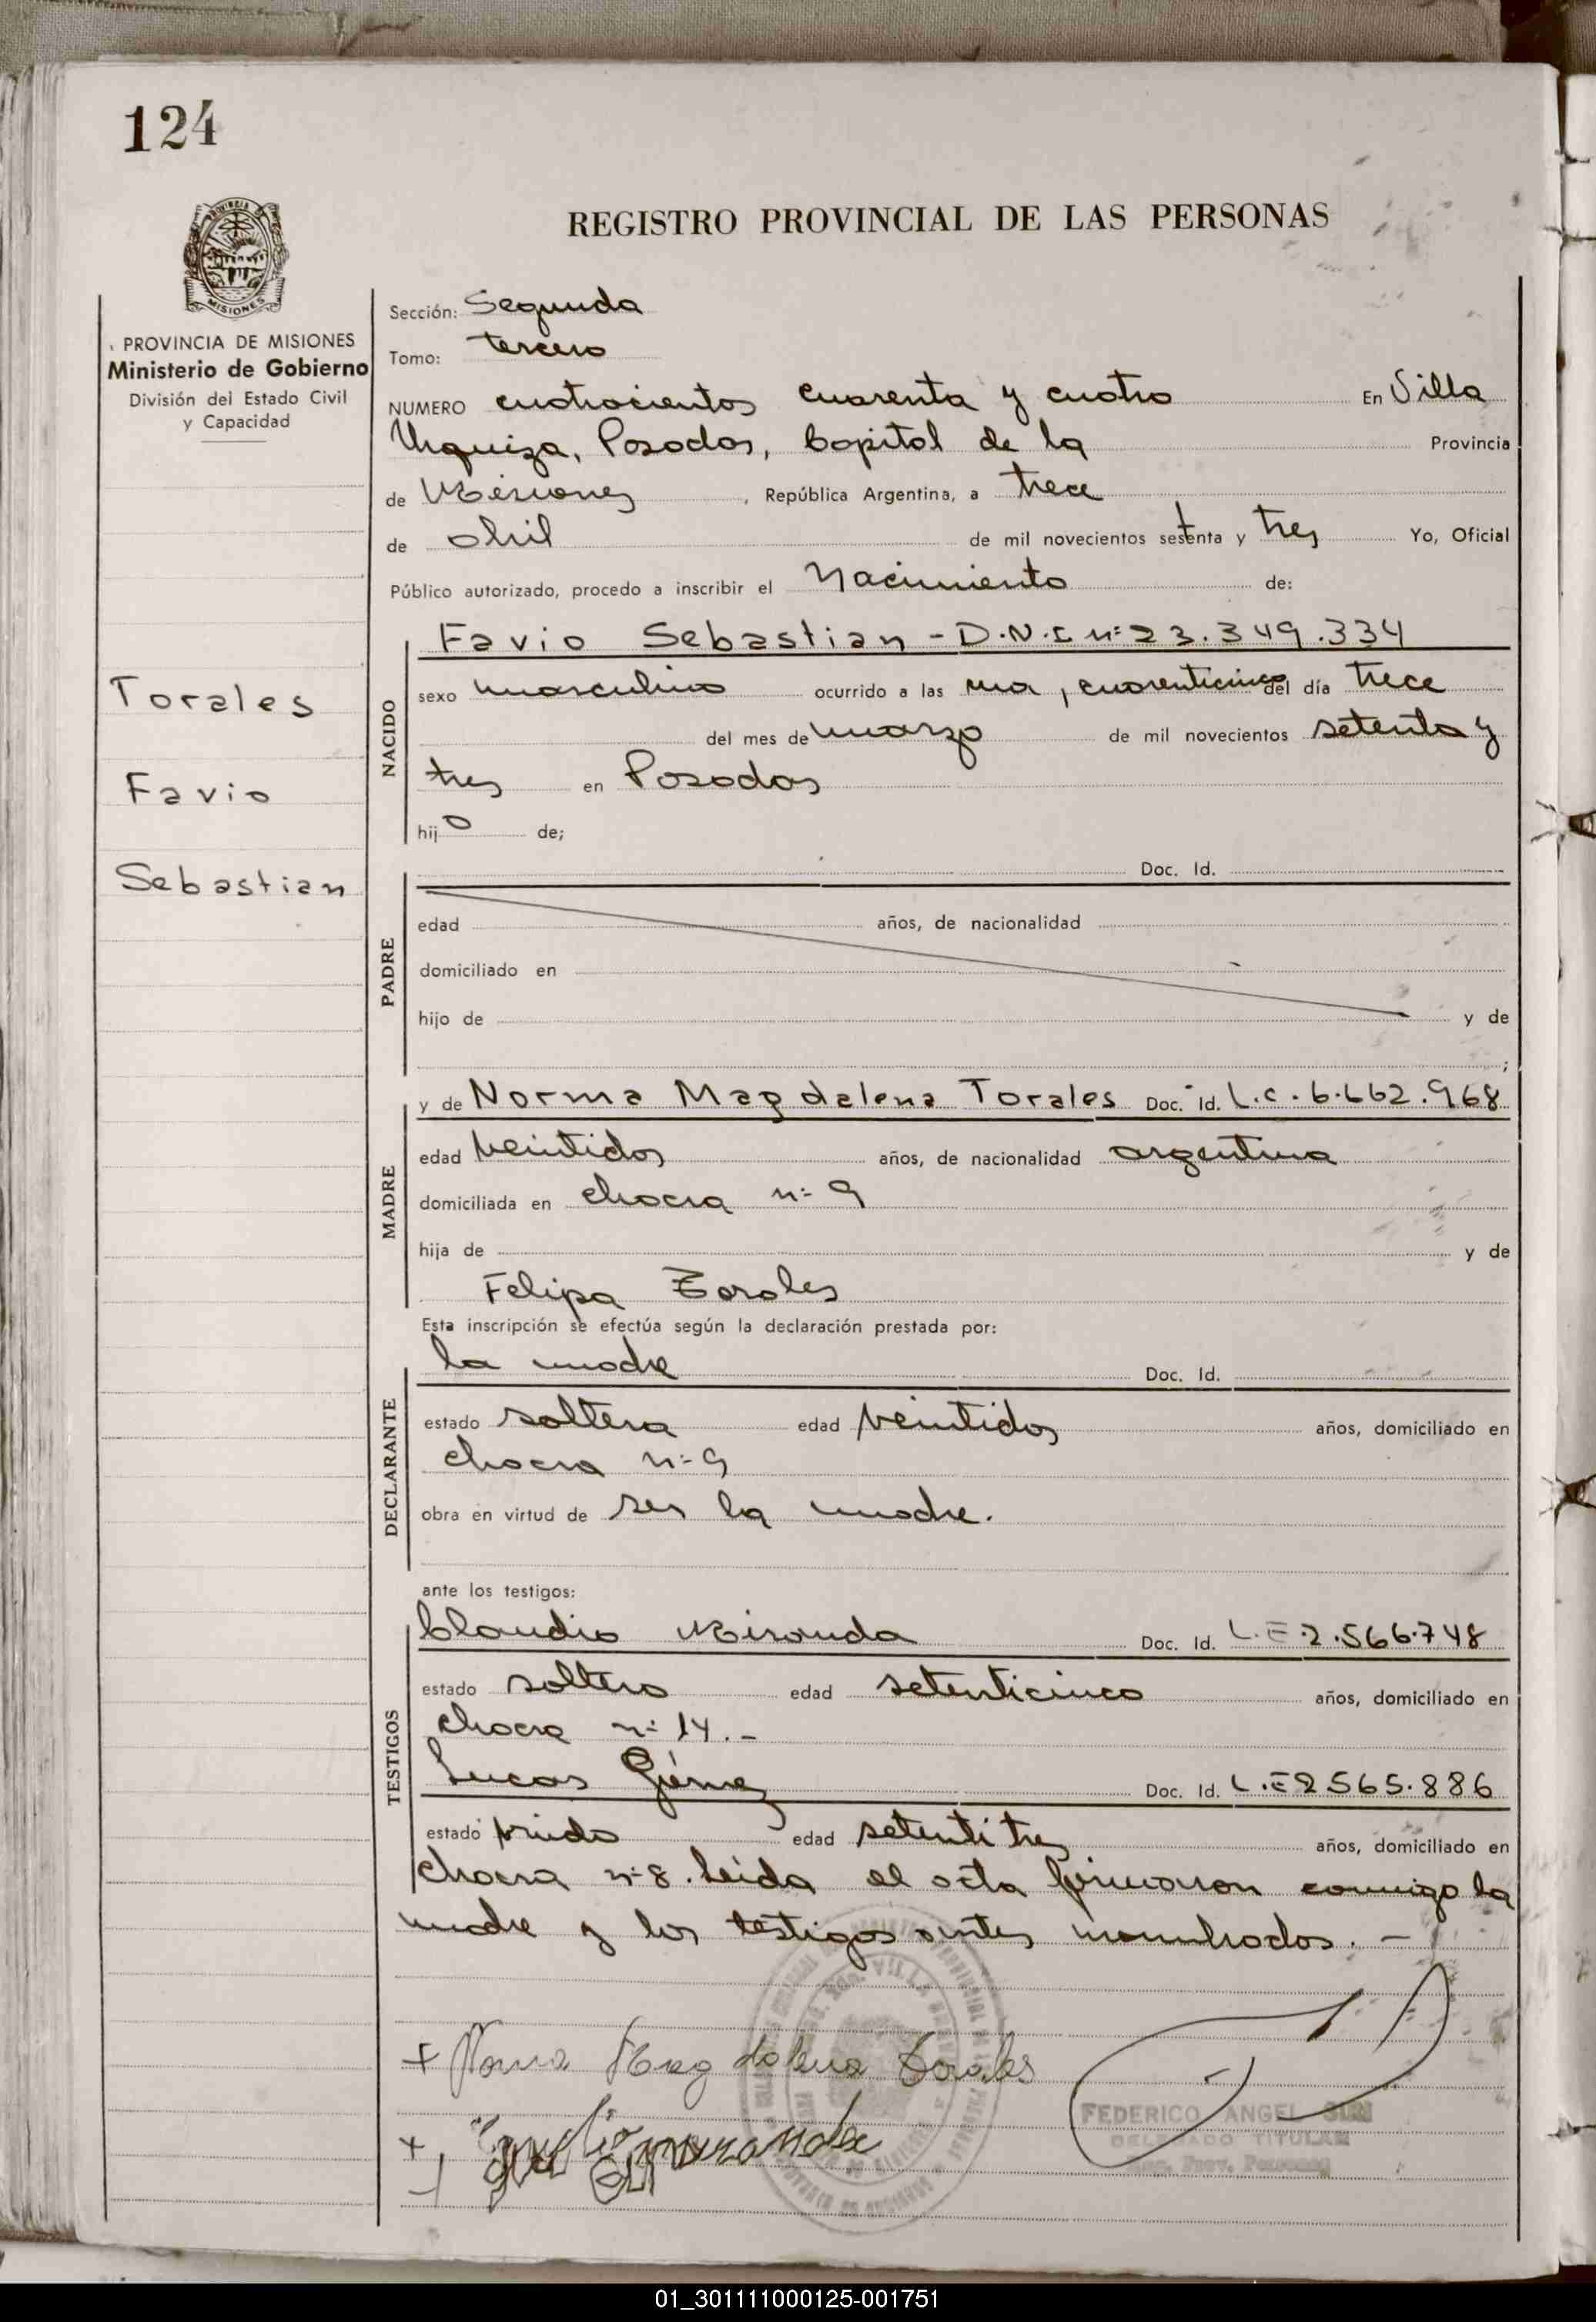 124
REGISTRO PROVINCIAL DE LAS PERSONAS
PROVINCIA DE MISIONES
Ministerio de Gobierno
División del Estado Civil
y Capacidad
Sección: Segunda
Tomo: tercero
NUMERO cuatrocientos cuarenta y cuatro En Villa
Urquiza, Posadas, Capital de la Provincia
de Misiones, República Argentina, a trece
de abril de mil novecientos setenta y tres Yo, Oficial
Público autorizado, procedo a inscribir el Nacimiento de:
Torales
Favio
Sebastian
NACIDO
Favio Sebastian - D.N.I nº 23.349.334
sexo masculino ocurrido a las una, cuarenticinco del día trece
del mes de marzo de mil novecientos setenta y
tres en Posadas
hijo de;
PADRE
Doc. Id.
edad años, de nacionalidad
domiciliado en
hijo de y de
;
MADRE
y de Norma Magdalena Torales Doc. Id. L.C. 6.662.968
edad veintidos años, de nacionalidad argentina
domiciliada en chacra nº 9
hija de y de
Felipa Torales
Esta inscripción se efectúa según la declaración prestada por:
DECLARANTE
la madre Doc. Id.
estado soltera edad veintidos años, domiciliado en
chacra nº 9
obra en virtud de ser la madre.
ante los testigos:
TESTIGOS
Claudio Miranda Doc. Id. L.E. 2.566.748
estado soltero edad setenticinco años, domiciliado en
chacra nº 14.-
Lucas Doc. Id. L.E 2.565.886
estado viudo edad setentitres años, domiciliado en
chacra nº 8. Leida el acta firmaron conmigo la
madre y los testigos antes nombrados. -
+ Norma Magdalena Torales
+ miranda
FEDERICO ANGEL
DELEGADO TITULAR
01_301111000125-001751